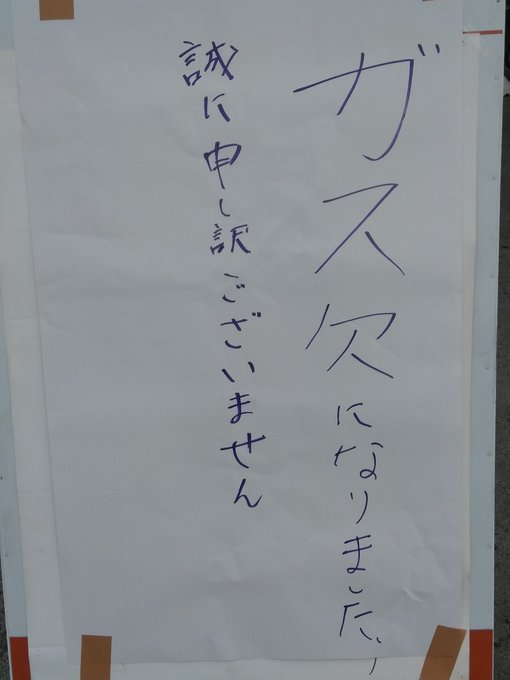 ガス欠になりました、
誠に申し訳ございません